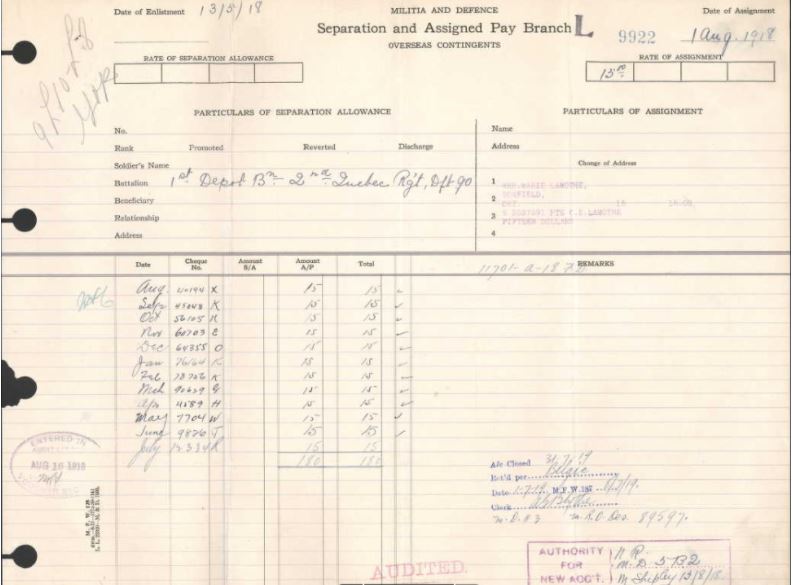 Date of Enlistment 13/5/18
MILITIA AND DEFENCE
Date of Assignment
Separation and Assigned Pay Branch L
9922
1 Aug. 1918
OVERSEAS CONTINGENTS
RATE OF SEPARATION ALLOWANCE
RATE OF ASSIGNMENT
15
PARTICULARS OF SEPARATION ALLOWANCE
PARTICULARS OF ASSIGNMENT
No.
Name
Rank Promoted Reverted Discharge
Address
Soldier's Name
Change of Address
Battalion 1st Depot Bn. 2nd Quebec Rgt, Dft 90
1 MRS. MARIE LAMOTHE,
Beneficiary
2
ONT. 15 15.00,
Relationship
3 PTE C.E. LAMOTHE
FIFTEEN DOLLARS
Address
4
Date Cheque No. Amount S/A Amount A/P Total REMARKS
11701-a-18
Aug. K 15 15
Sep 45048 K 15 15
Oct 56105 K 15 15
Nov 60703 E 15 15
Dec 64355 O 15 15
Jan 76164 K 15 15
Feb 78726 K 15 15
Mch 90629 G 15 15
Apr 4589 H 15 15
May 7704 W 15 15
June 9876 J 15 15
July 12334 K 15 15
180 180
ENTERED IN
AUG 16 1918
A/c Closed 31/7/19
Ret'd per
Date 1-7-19 M.F.W. 187
Clerk
M.D. #3 89597.
M. F. W. 128
AUDITED.
AUTHORITY N.R.
FOR M.D. 5732
NEW ACC'T. M Shipley 13/8/18.